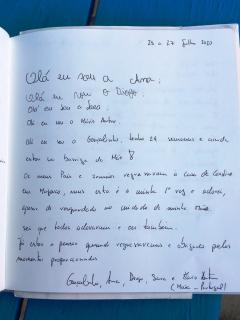 23 a 27 Julho 2020
Olá eu sou a Ana;
Olá eu sou o Diogo;
Olá eu sou a Sara;
Olá eu sou o Mário Antor.
Olá eu sou o Gonçalinho, tenho 24 semanas e ainda
estou na barriga da Mãe
Os meus Pais e irmãos regressaram à casa de
em, mas esta é a minha 1ª vez e adorei,
da minha
sei que todos adoraram e eu também.
Já estou a pensar quando regressaremos e obrigado pelos
momentos proporcionados
Gonçalinho, Ana, Diogo, Sara e Mário
(Maia - Portugal)